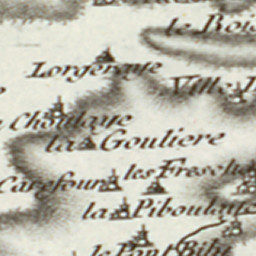 le Bois
Lorgeraye
Ville
Choulaye
la Gouliere
Carefour
les Fresche
la Piboulaye
le Pont Biht